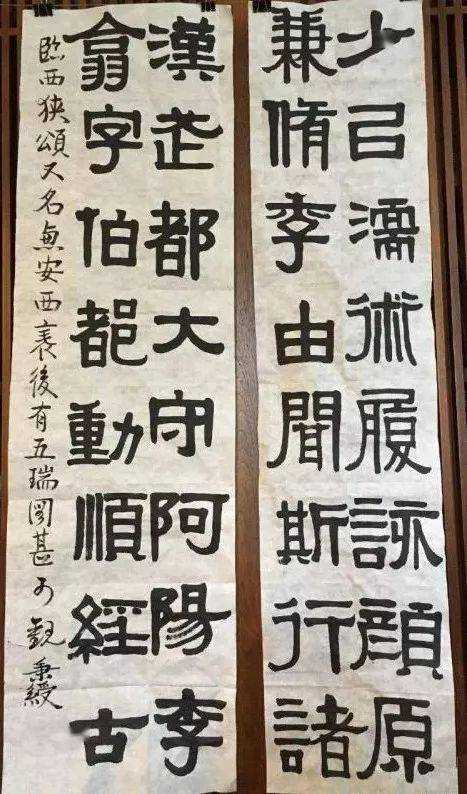 少㠯濡術履該顔原
兼脩季由聞斯行諸
漢武都大守阿陽李
翕字伯都動順經古
臨西狹頌又名惠安西表後有五瑞圖甚可觀 秉綬